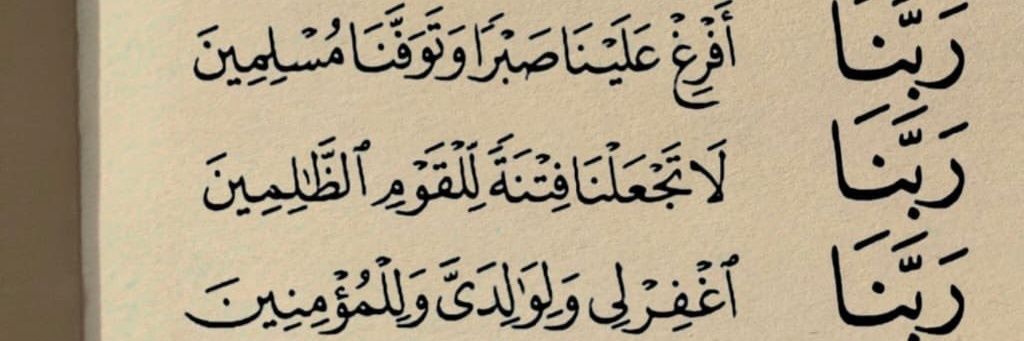 رَبَّنَا أَفْرِغْ عَلَيْنَا صَبْرًا وَتَوَفَّنَا مُسْلِمِينَ
رَبَّنَا لَا تَجْعَلْنَا فِتْنَةً لِّلْقَوْمِ ٱلظَّـٰلِمِينَ
رَبَّنَا ٱغْفِرْ لِى وَلِوَٰلِدَىَّ وَلِلْمُؤْمِنِينَ